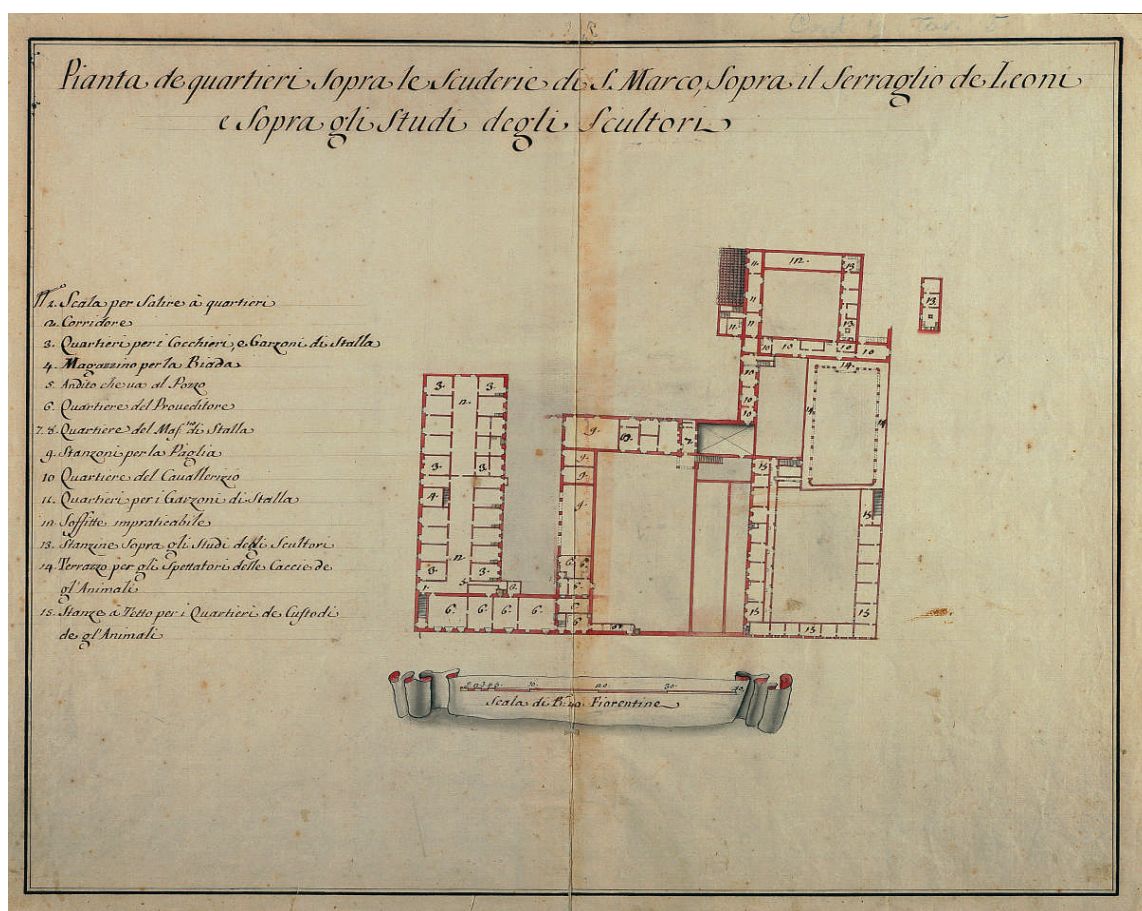 Pianta de quartieri Sopra le Scuderie di S. Marco, Sopra il Serraglio de Leoni
e Sopra gli Studi degli Scultori
1. Scala per Salire à quartieri
2. Corridore
3. Quartieri per i Cocchieri, e Garzoni di Stalla
4. Magazzino per la Biada
5. Andito che va al Pozzo
6. Quartiere del Proveditore
7. 8. Quartiere del di Stalla
9. Stanzoni per la Paglia
10 Quartiere del Cavallerizio
11. Quartieri per i Garzoni di Stalla
12. Soffitte impraticabile
13. Stanzine Sopra gli Studi degli Scultori
14. Terrazzo per gli Spettatori delle Caccie de
gl'Animali
15. Stanze à Tetto per i Quartieri de Custodi
de gl'Animali
Scala di Fiorentine